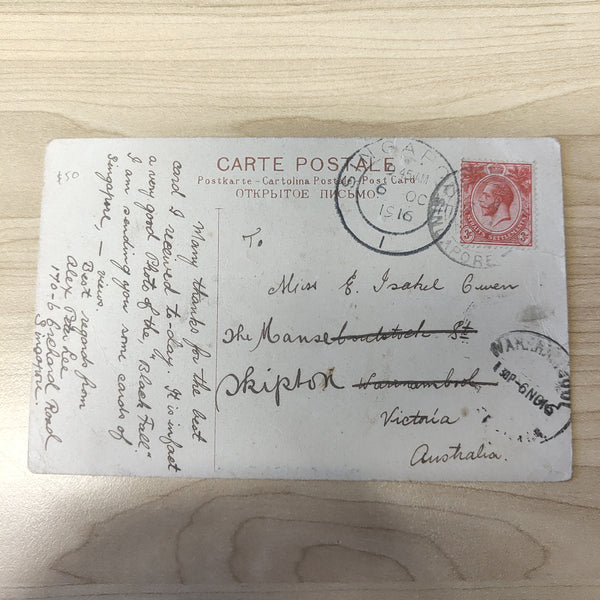 CARTE POSTALE
Postkarte - Cartolina Postale - Post Card
ОТКРЫТОЕ ПИСЬМО
$50
Many thanks for the best
card I received to-day. It is infact
a very good Photo of the "Black Fall".
I am sending you some cards of
Singapore, — views
Best regards from
Alex Pan Lee
170-6 Orchard Road
Singapore.
To
Miss E. Isabel Cuven
The Manse Woodstock St
Skipton Warrnambool
Victoria
Australia.
SINGAPORE
45 AM
6 OC
1916
1
SINGAPORE
WARRNAMBOOL
1 30P-6NO16